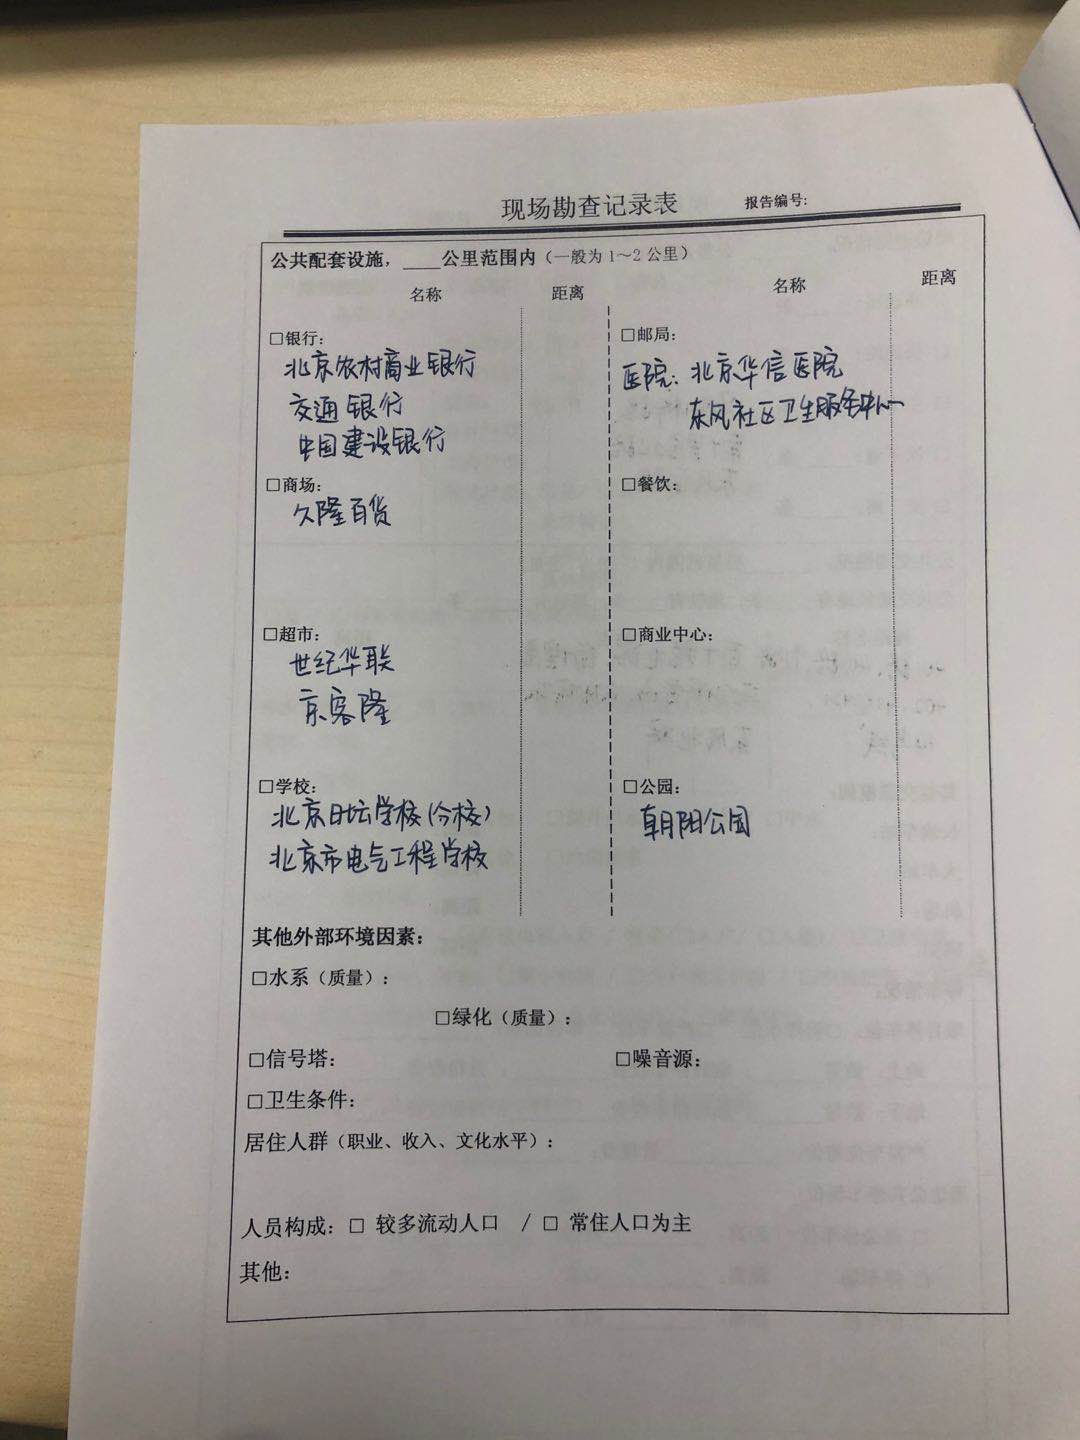 现场勘查记录表 报告编号:
公共配套设施，____公里范围内（一般为1～2公里）
名称 距离 名称 距离
□银行: □邮局:
北京农村商业银行 医院: 北京华信医院
交通银行 东风社区卫生服务中心
中国建设银行
□商场: □餐饮:
久隆百货
□超市: □商业中心:
世纪华联
京客隆
□学校: □公园:
北京日坛学校(分校) 朝阳公园
北京市电气工程学校
其他外部环境因素:
□水系（质量）:
□绿化（质量）:
□信号塔: □噪音源:
□卫生条件:
居住人群（职业、收入、文化水平）:
人员构成: □ 较多流动人口 / □ 常住人口为主
其他: